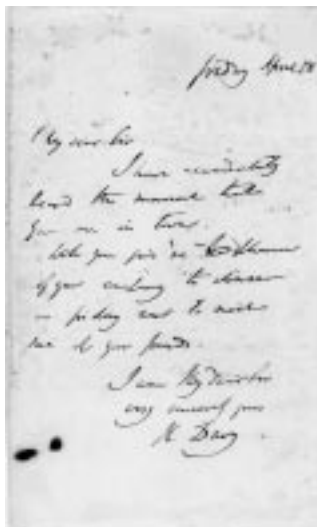 friday April 18
My dear Sir
I have accidentally
heard this moment that
you are in town.
Will you give me the pleasure
of your company to dinner
on friday next to meet
some of your friends.
I am My dear Sir
very sincerely yours
H Davy